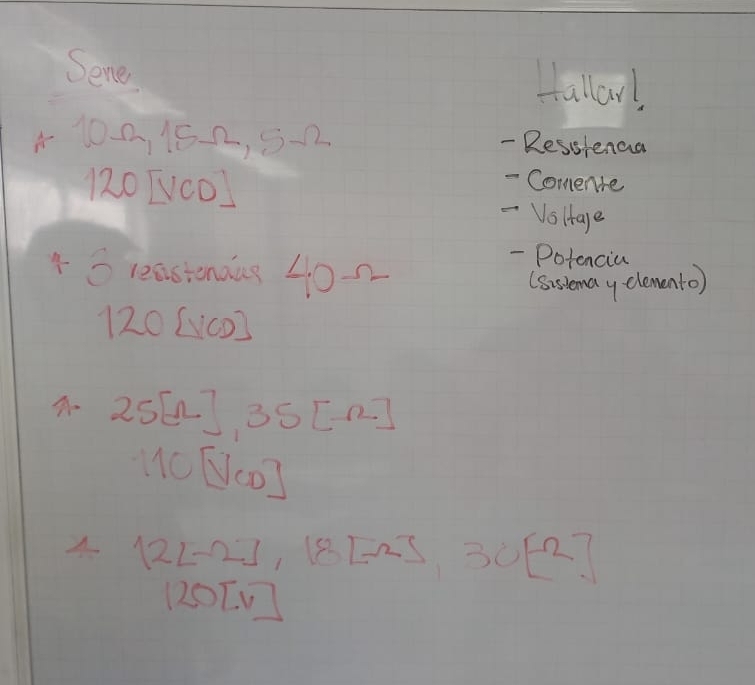 Serie
* 10Ω, 15Ω, 5Ω
120 [VCD]
* resistencias 40Ω
120 [VCD]
* 25[Ω], 35[Ω]
110 [VCD]
* 12[Ω], 18[Ω], 30[Ω]
120[V]
Hallar!
- Resistencia
- Corriente
- Voltaje
- Potencia
(Sistema y elemento)